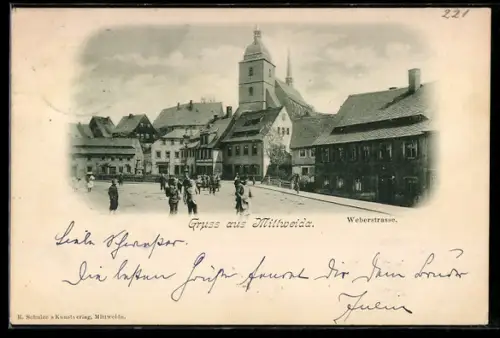 221
Gruss aus Mittweida.
Weberstrasse.
Liebe Schwester.
Die besten Grüße sendet Dir Dein Bruder
R. Schulze's Kunstverlag, Mittweida.